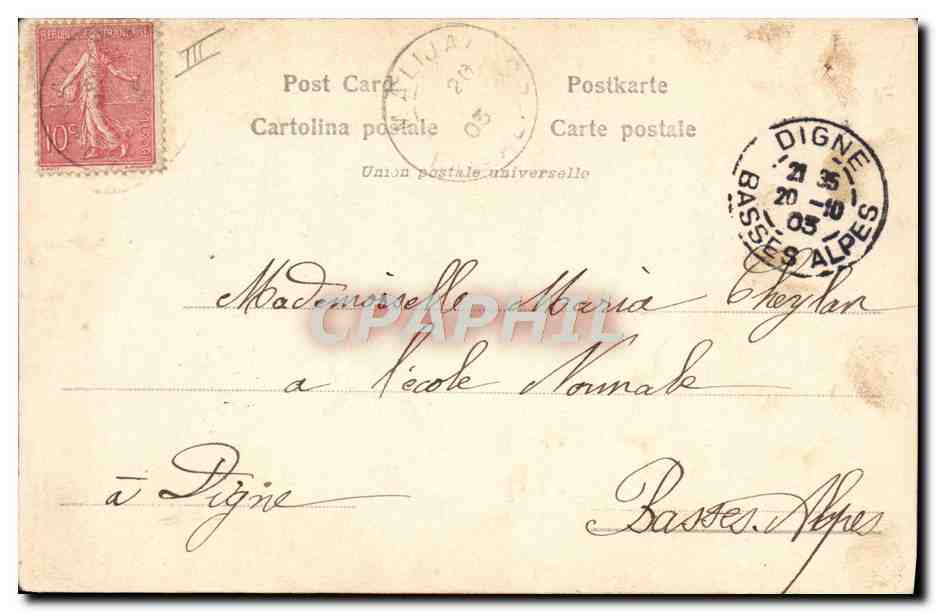 REPUBLIQUE FRANÇAISE
10c
POSTES
III
MALIJAI
20
03
Post Card
Postkarte
Cartolina postale
Carte postale
Union postale universelle
DIGNE
21 35
20 -10
03
BASSES ALPES
Mademoiselle Maria Cheylan
a l'école Normale
à Digne
Basses-Alpes
CPAPHIL